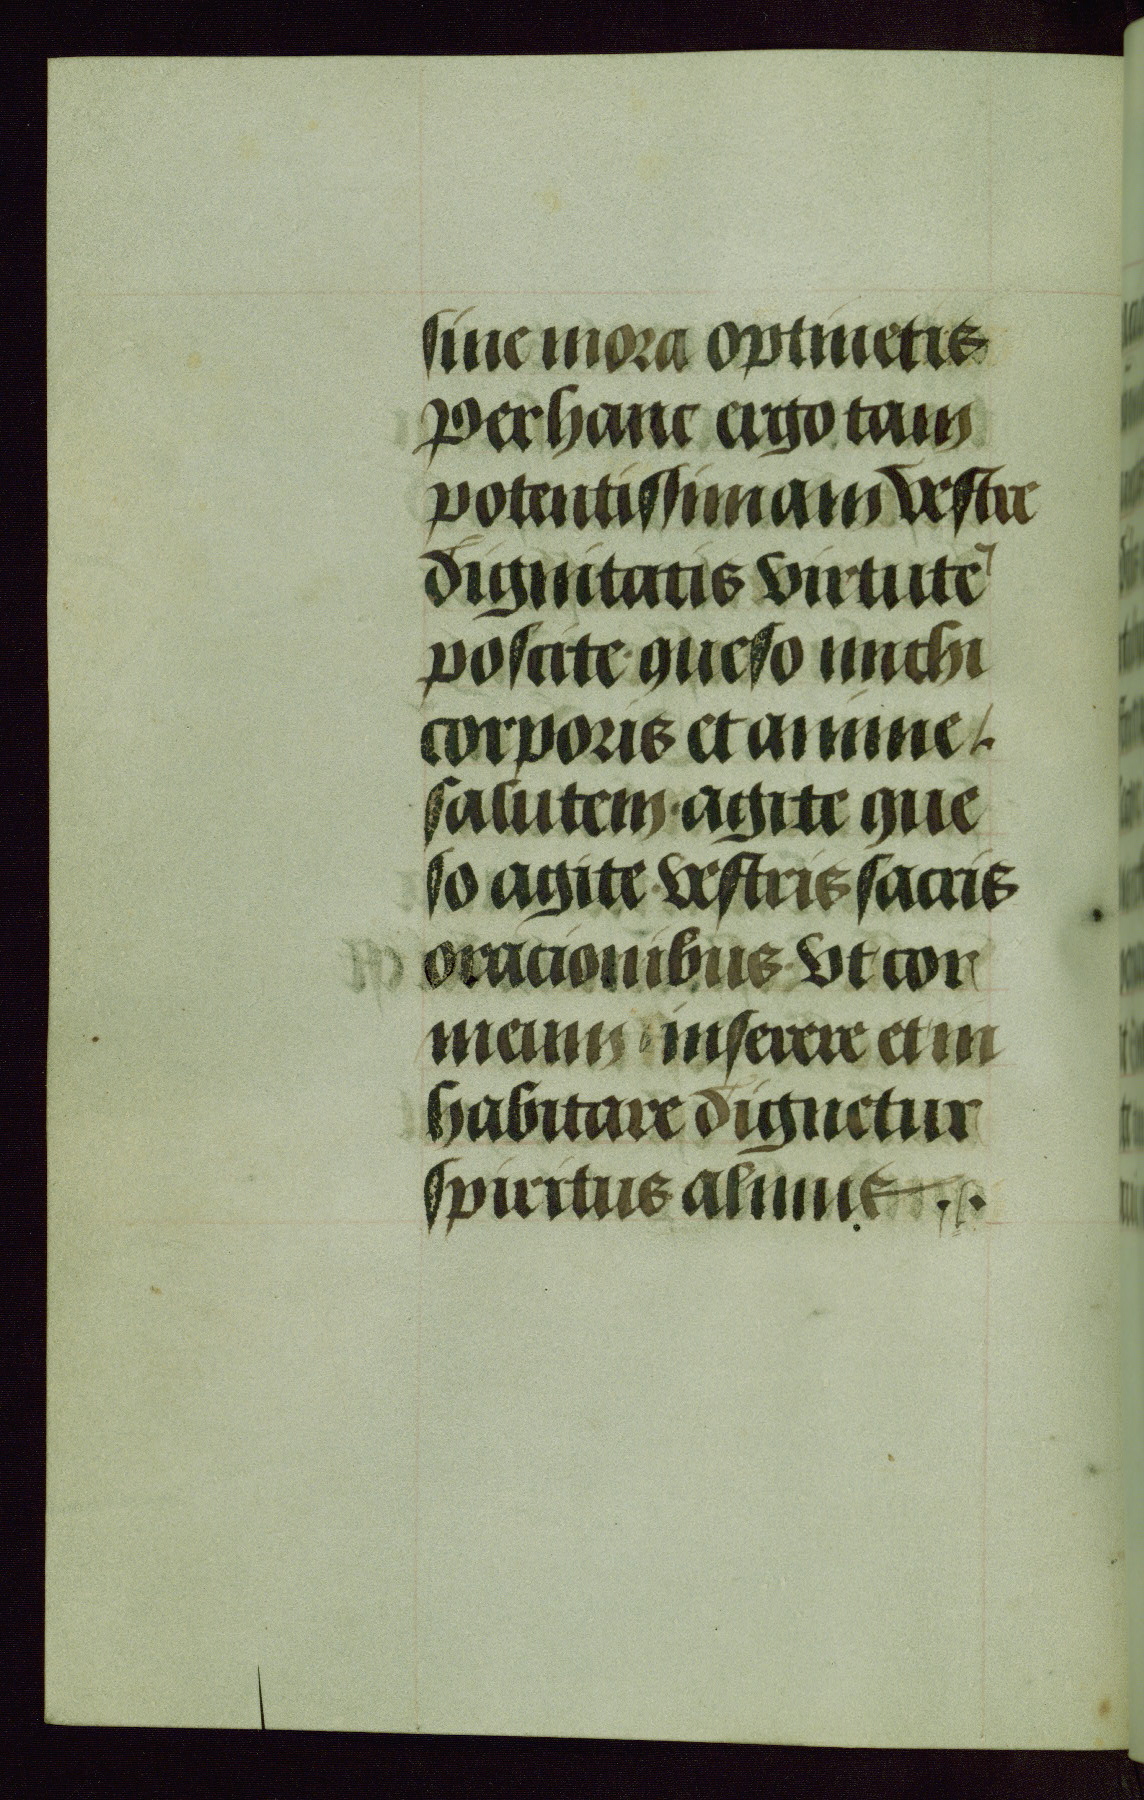 sine mora optinetis
Per hanc ergo tam
potentissimam vestre
dignitatis virtutẽ
poscite queso michi
corporis et anime
salutem agite que
so agite vestris sacris
oracionibus vt cor
meum inserere et in
habitare dignetur
spiritus almus